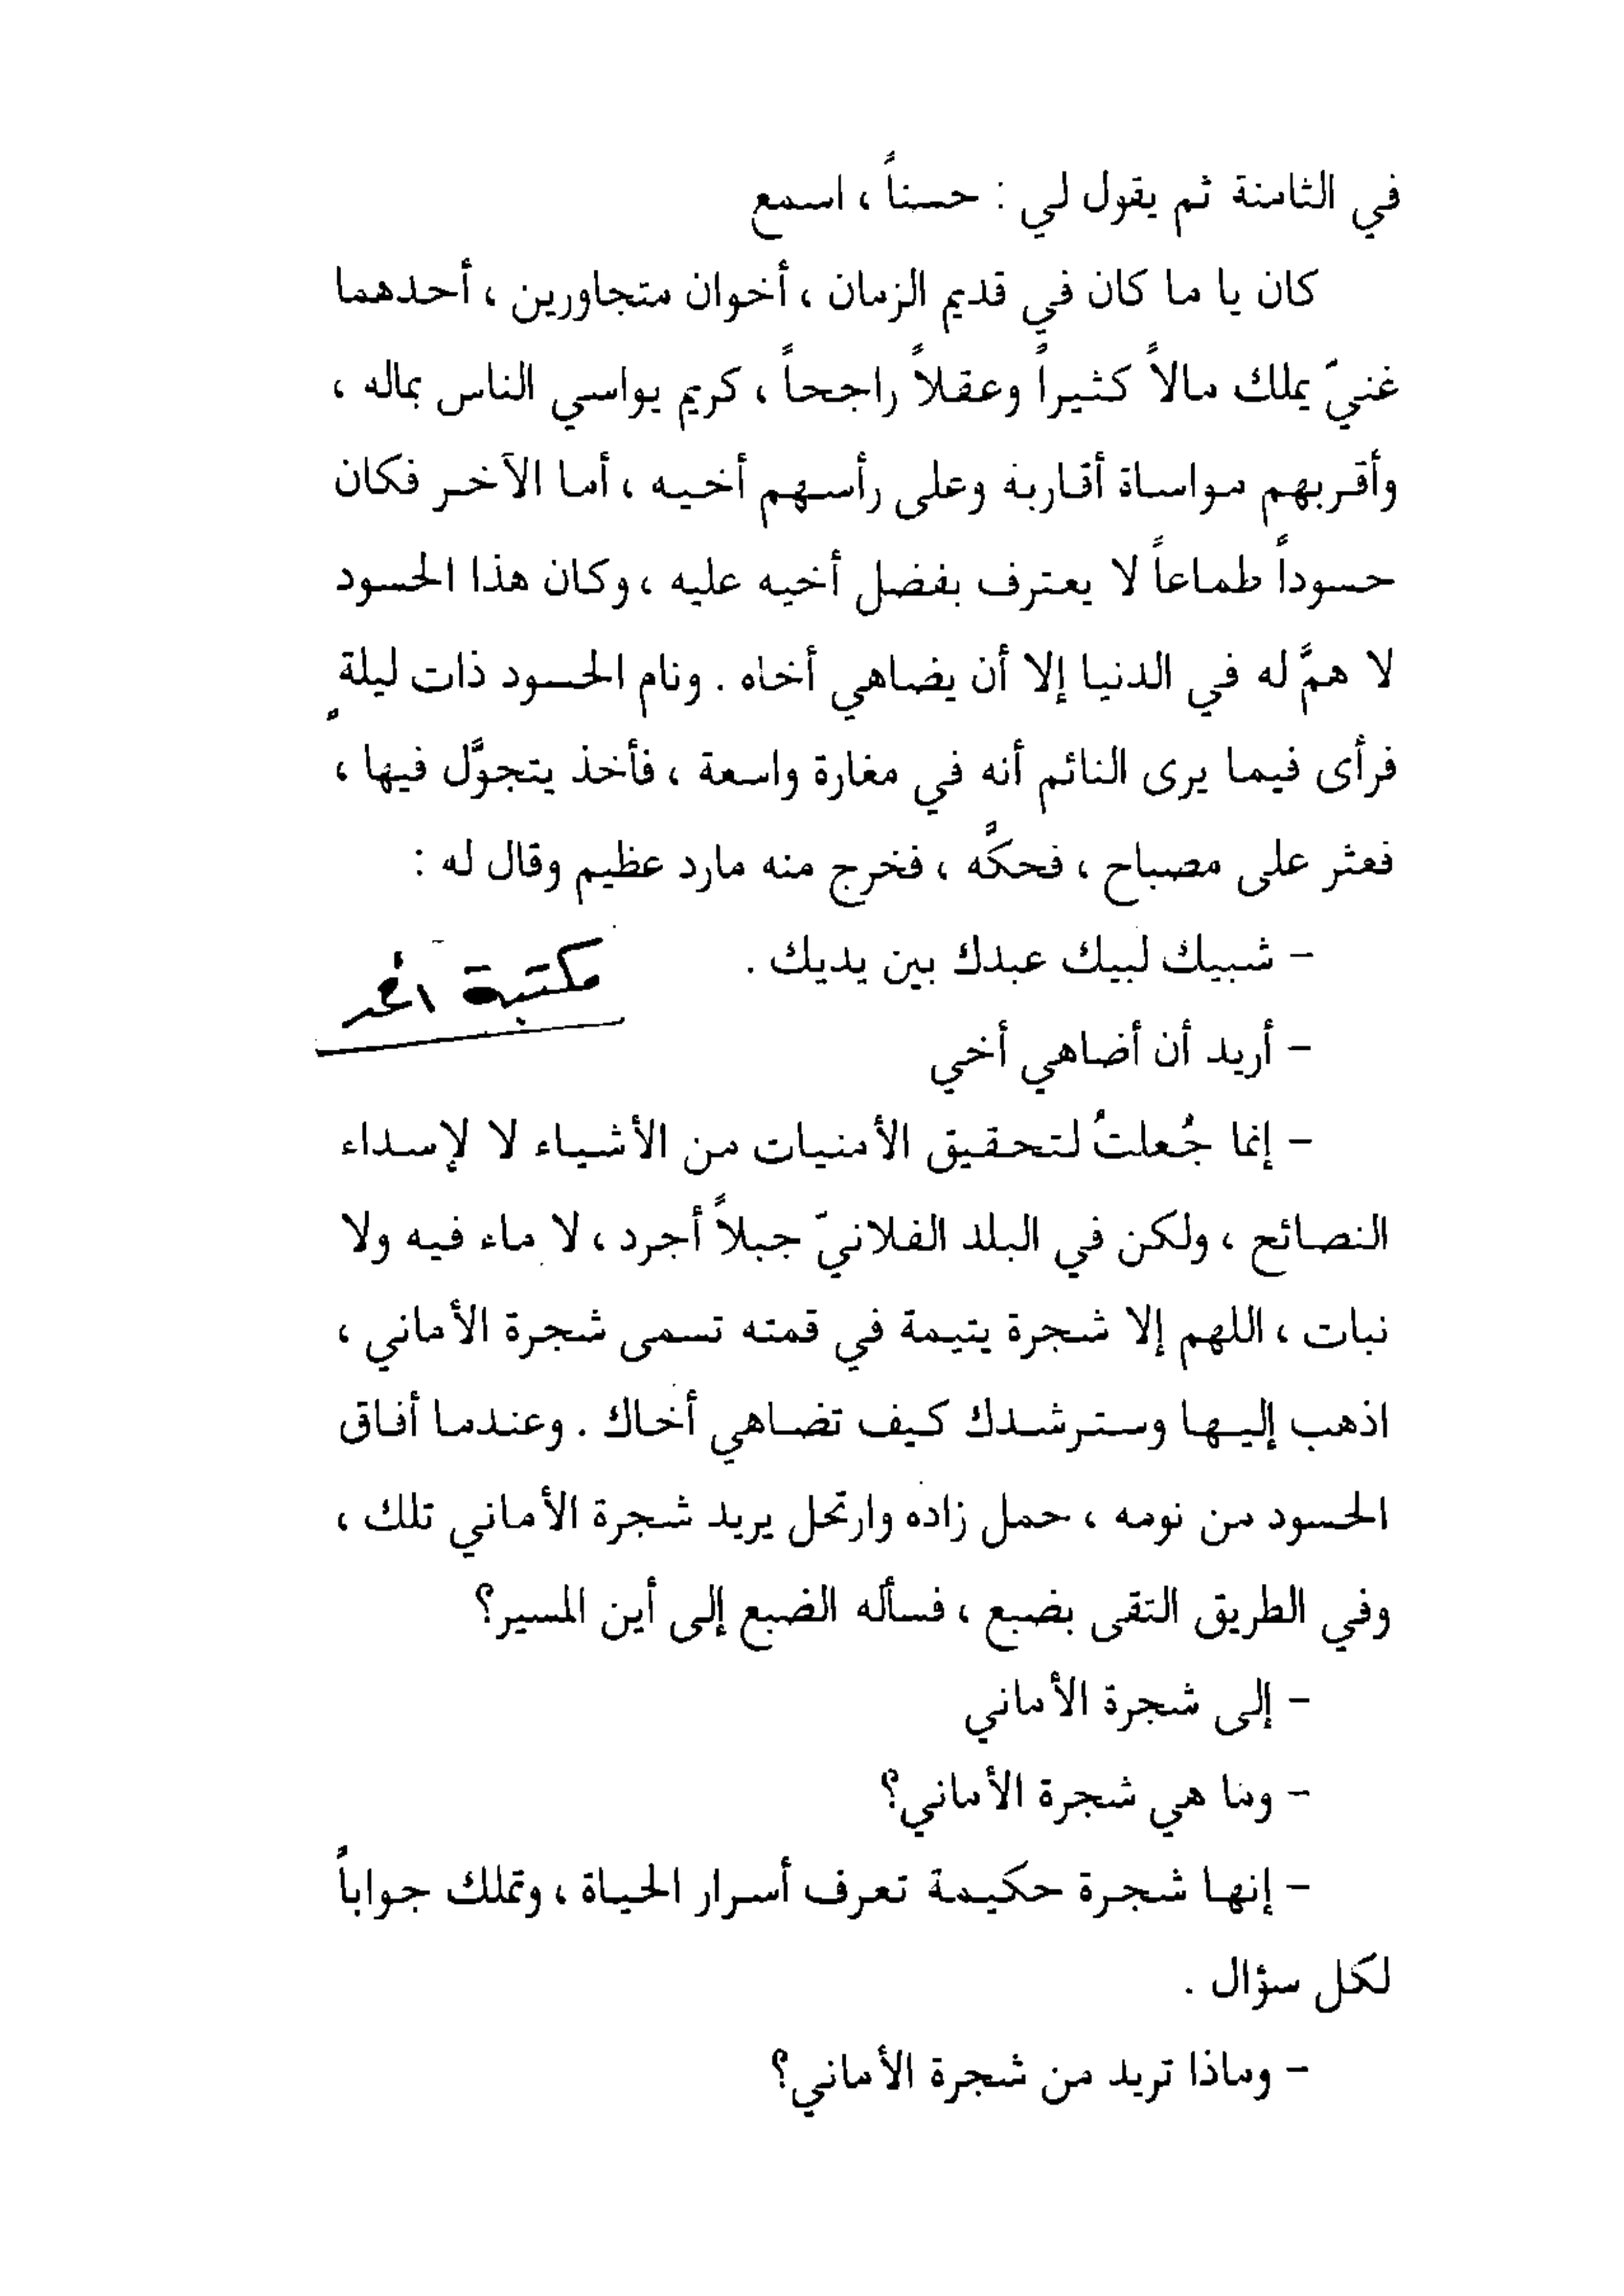 في الثامنة ثم يقول لي : حسناً ، اسمع
كان يا ما كان في قديم الزمان ، أخوان متجاورين ، أحدهما
غنيّ يملك مالاً كثيراً وعقلاً راجحاً ، كريم يواسي الناس بماله ،
وأقربهم مواساة أقاربة وعلى رأسهم أخيه ، أما الآخر فكان
حسوداً طماعاً لا يعترف بفضل أخيه عليه ، وكان هذا الحسود
لا همَّ له في الدنيا إلا أن يضاهي أخاه . ونام الحسود ذات ليلةٍ
فرأى فيما يرى النائم أنه في مغارة واسعة ، فأخذ يتجوَّل فيها ،
فعثر على مصباح ، فحكَّه ، فخرج منه مارد عظيم وقال له :
– شبيك لبيك عبدك بين يديك .
مكتبة
– أريد أن أضاهي أخي
– إنما جُعلتُ لتحقيق الأمنيات من الأشياء لا لإسداء
النصائح ، ولكن في البلد الفلانيّ جبلاً أجرد ، لا ماء فيه ولا
نبات ، اللهم إلا شجرة يتيمة في قمته تسمى شجرة الأماني ،
اذهب إليها وسترشدك كيف تضاهي أخاك . وعندما أفاق
الحسود من نومه ، حمل زاده وارتحل يريد شجرة الأماني تلك ،
وفي الطريق التقى بضبع ، فسأله الضبع إلى أين المسير؟
– إلى شجرة الأماني
– وما هي شجرة الأماني؟
– إنها شجرة حكيمة تعرف أسرار الحياة ، وتملك جواباً
لكل سؤال .
– وماذا تريد من شجرة الأماني؟